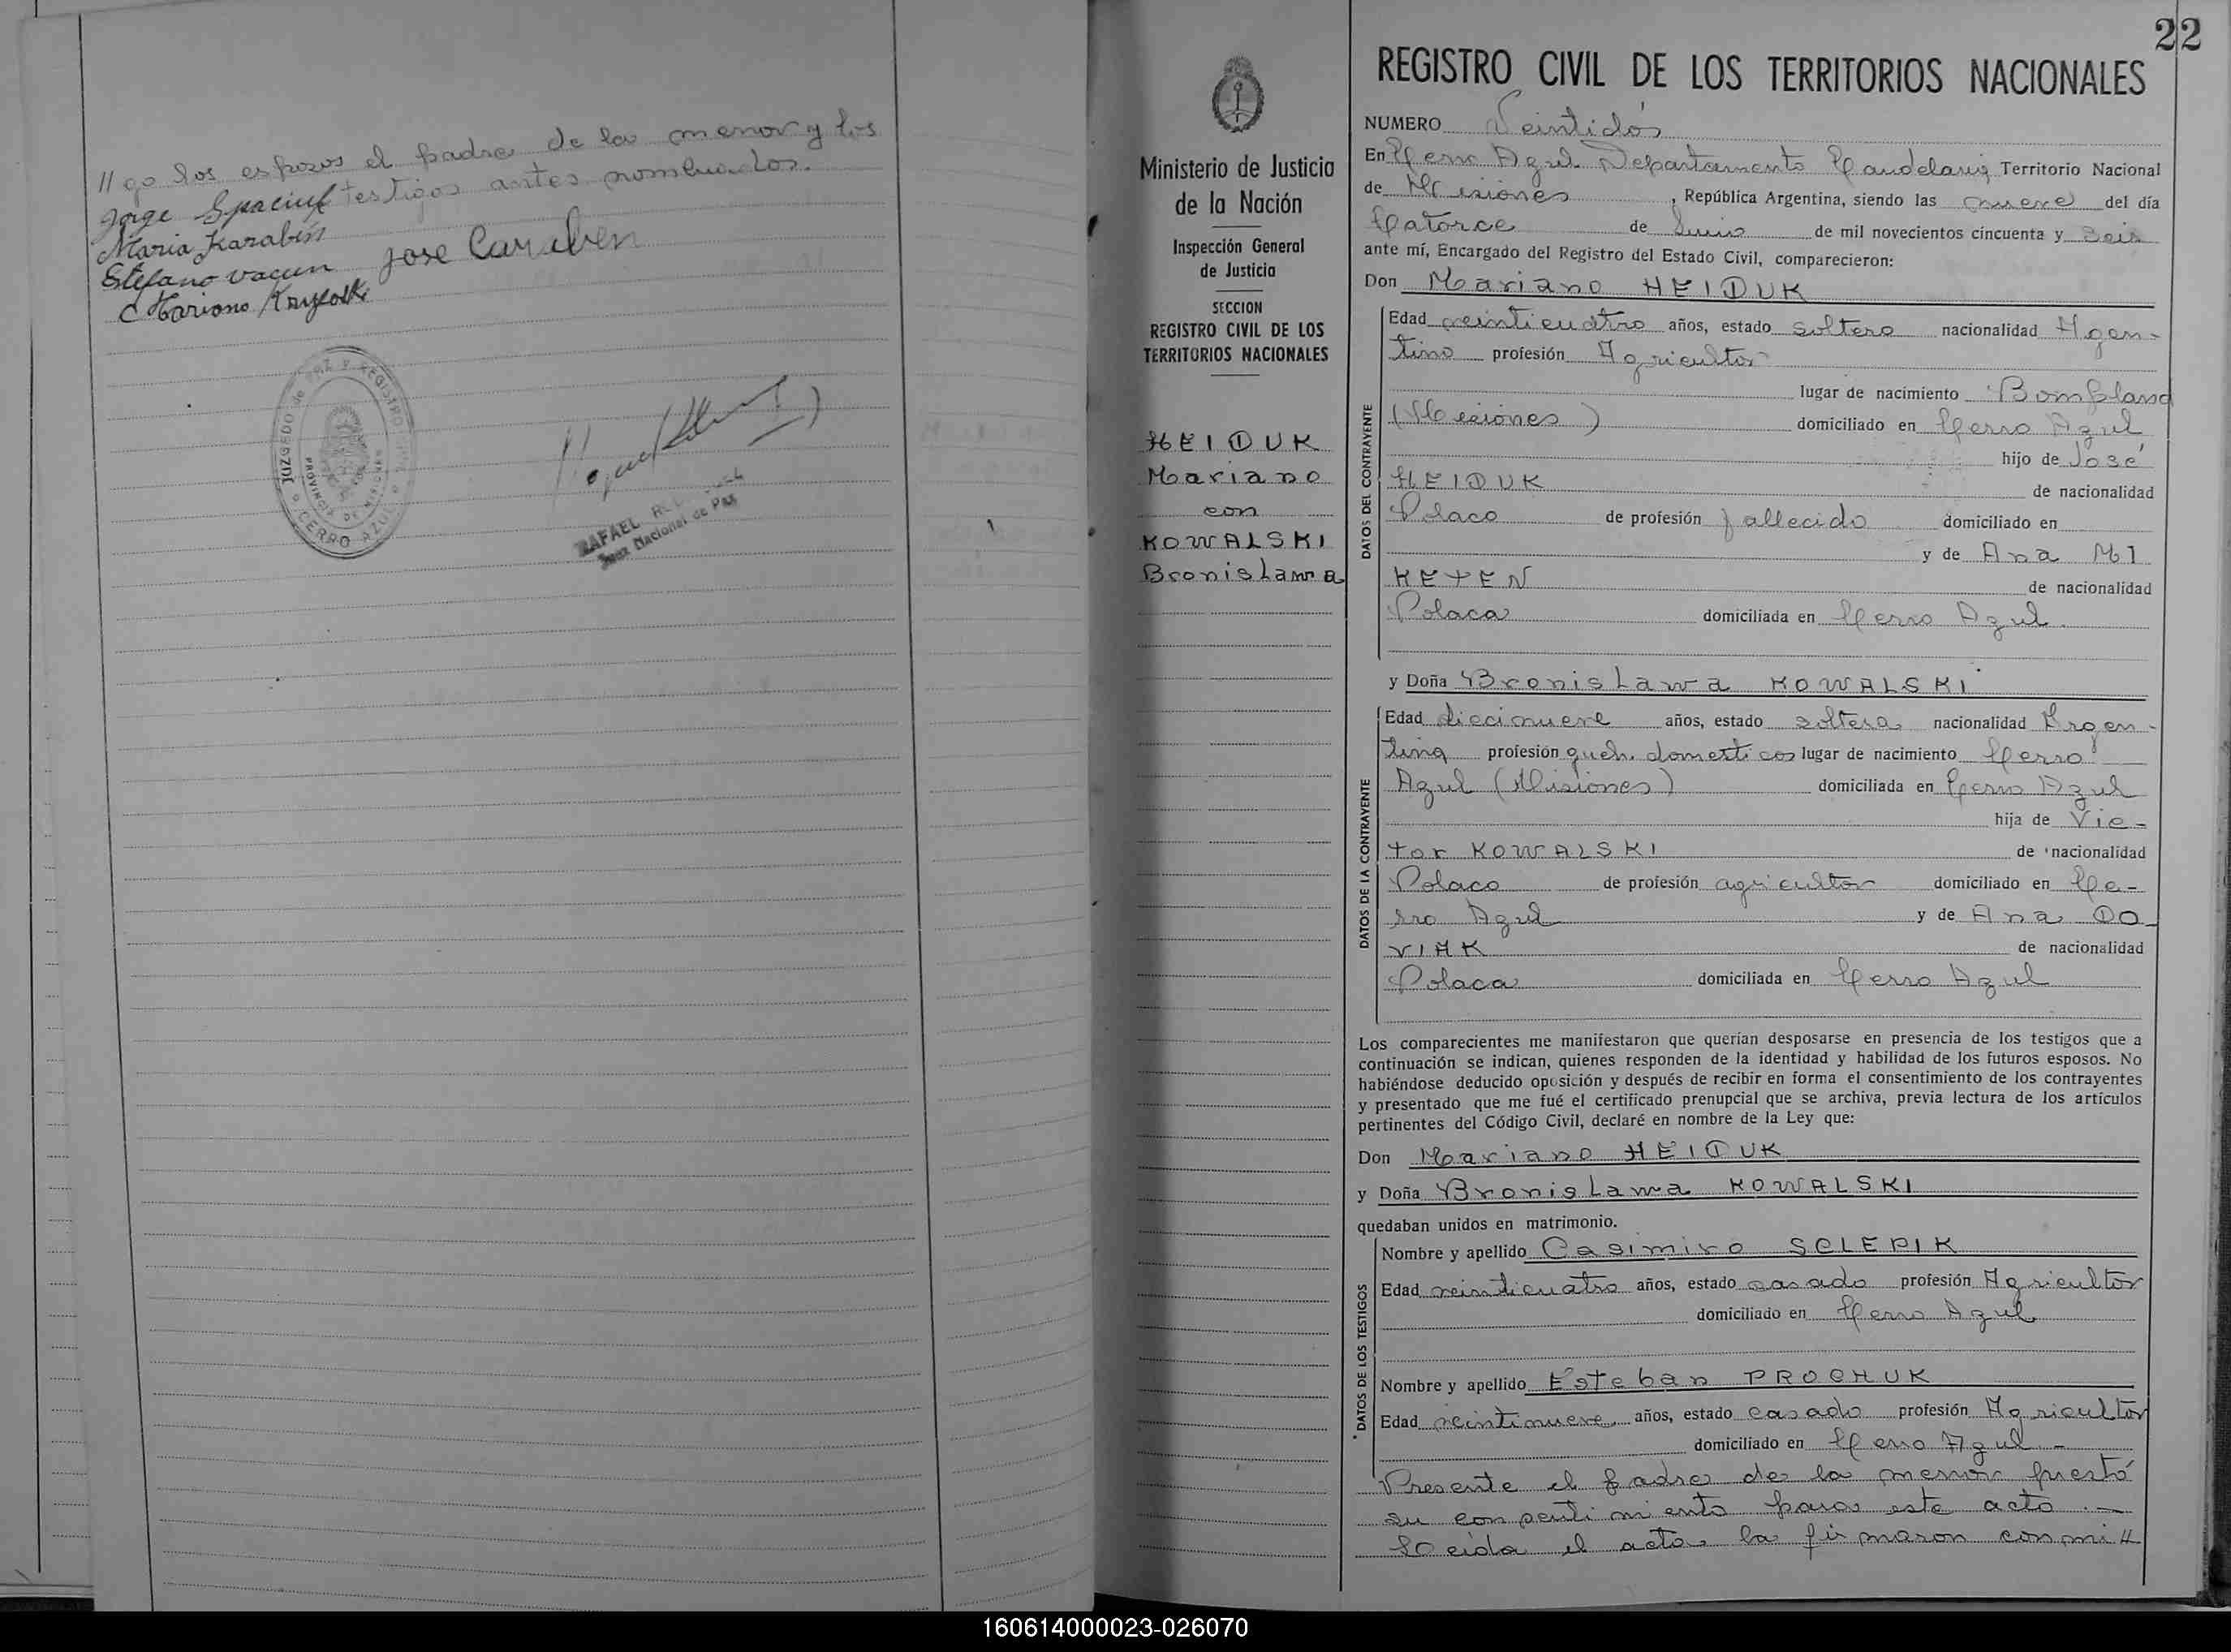 //go los esposos el padre de la menor y los
testigos antes nombrados.
Jorge
Maria Karabin
Stefano vacun Jose Caraben
Mariano
JUZGADO de PAZ y REGISTRO
PROVINCIA DE MISIONES
CERRO AZUL
RAFAEL
Juez Nacional de Paz
22
Ministerio de Justicia
de la Nación
Inspección General
de Justicia
SECCION
REGISTRO CIVIL DE LOS
TERRITORIOS NACIONALES
HEIDUK
Mariano
con
KOWALSKI
Bronislawa
REGISTRO CIVIL DE LOS TERRITORIOS NACIONALES
NUMERO Veintidós
En Cerro Azul Departamento Candelaria Territorio Nacional
de Misiones, República Argentina, siendo las nueve del día
Catorce de Junio de mil novecientos cincuenta y seis
ante mí, Encargado del Registro del Estado Civil, comparecieron:
Don Mariano HEIDUK
DATOS DEL CONTRAYENTE
Edad veinticuatro años, estado soltero nacionalidad Agen-
tino profesión Agricultor
lugar de nacimiento Bompland
(Misiones) domiciliado en Cerro Azul
hijo de José
HEIDUK de nacionalidad
Polaco de profesión fallecido domiciliado en
y de Ana MI
KETEN de nacionalidad
Polaca domiciliada en Cerro Azul.
y Doña Bronislawa KOWALSKI
DATOS DE LA CONTRAYENTE
Edad diecinueve años, estado soltera nacionalidad Argen-
tina profesión queh. domesticos lugar de nacimiento Cerro
Azul (Misiones) domiciliada en Cerro Azul
hija de Vic-
tor KOWALSKI de nacionalidad
Polaco de profesión agricultor domiciliado en Ce-
rro Azul y de Ana DO-
VIAK de nacionalidad
Polaca domiciliada en Cerro Azul
Los comparecientes me manifestaron que querían desposarse en presencia de los testigos que a
continuación se indican, quienes responden de la identidad y habilidad de los futuros esposos. No
habiéndose deducido oposición y después de recibir en forma el consentimiento de los contrayentes
y presentado que me fué el certificado prenupcial que se archiva, previa lectura de los artículos
pertinentes del Código Civil, declaré en nombre de la Ley que:
Don Mariano HEIDUK
y Doña Bronislawa KOWALSKI
quedaban unidos en matrimonio.
DATOS DE LOS TESTIGOS
Nombre y apellido Casimiro SCLEPIK
Edad veinticuatro años, estado casado profesión Agricultor
domiciliado en Cerro Azul
Nombre y apellido Esteban PROCHUK
Edad veintinueve años, estado casado profesión Agricultor
domiciliado en Cerro Azul.-
Presente el padre de la menor prestó
su consentimiento para este acto.-
Leída el acta la firmaron conmi//
160614000023-026070